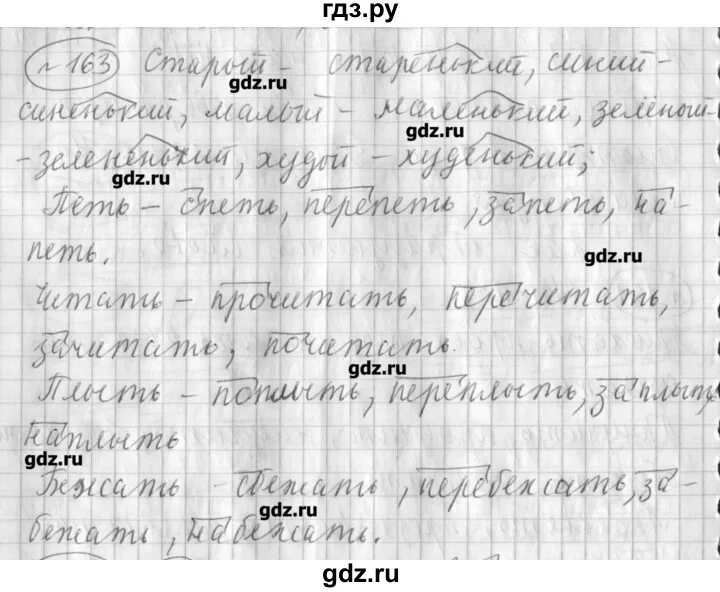 гдз.ру
№ 163 Старый - старенький, синий -
gdz.ru
синенький, малый - маленький, зелёный -
gdz.ru
- зелененький, худой - худенький;
gdz.ru
Петь - спеть, перепеть, запеть, на-
петь.
gdz.ru
Читать - прочитать, перечитать,
зачитать, почитать.
gdz.ru
Плыть - поплыть, переплыть, заплыть,
наплыть
gdz.ru
Бжать - сбежать, перебежать, за-
gdz.ru
бежать, набежать.
gdz.ru